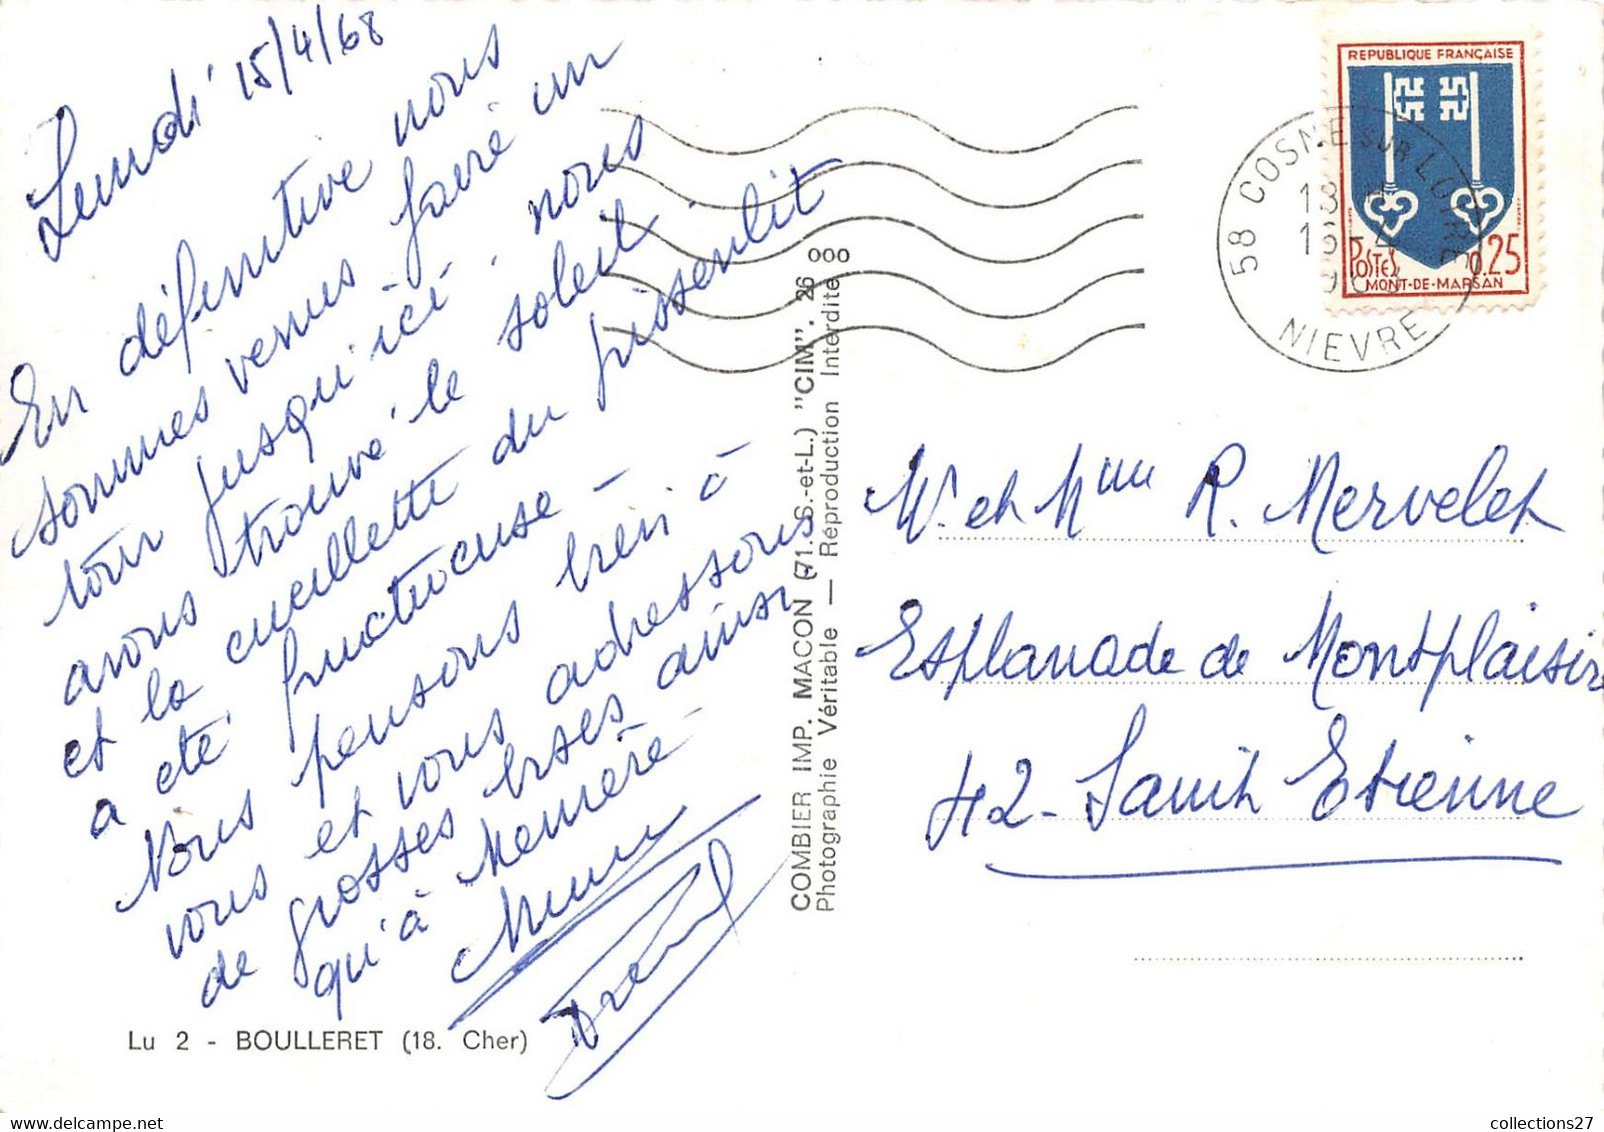 Lundi 15/4/68
En définitive nous
sommes venus faire un
tour jusqu'ici. nous
avons trouvé le soleil
et la cueillette du pissenlit
a été fructueuse -
Nous pensons bien à
vous et vous adressons
de grosses bises ainsi
qu'à Memère -
Lu 2 - BOULLERET (18. Cher)
COMBIER IMP. MACON (71. S.-et-L.) "CIM". 26 000
Photographie Véritable — Réproduction Interdite
REPUBLIQUE FRANÇAISE
POSTES 0.25
MONT-DE-MARSAN
58 COSNE SUR LOIRE
18 H
16-4
NIEVRE
M. et Mme R. Mervelet
Esplanade de Montplaisir
42 - Saint Etienne
collections27